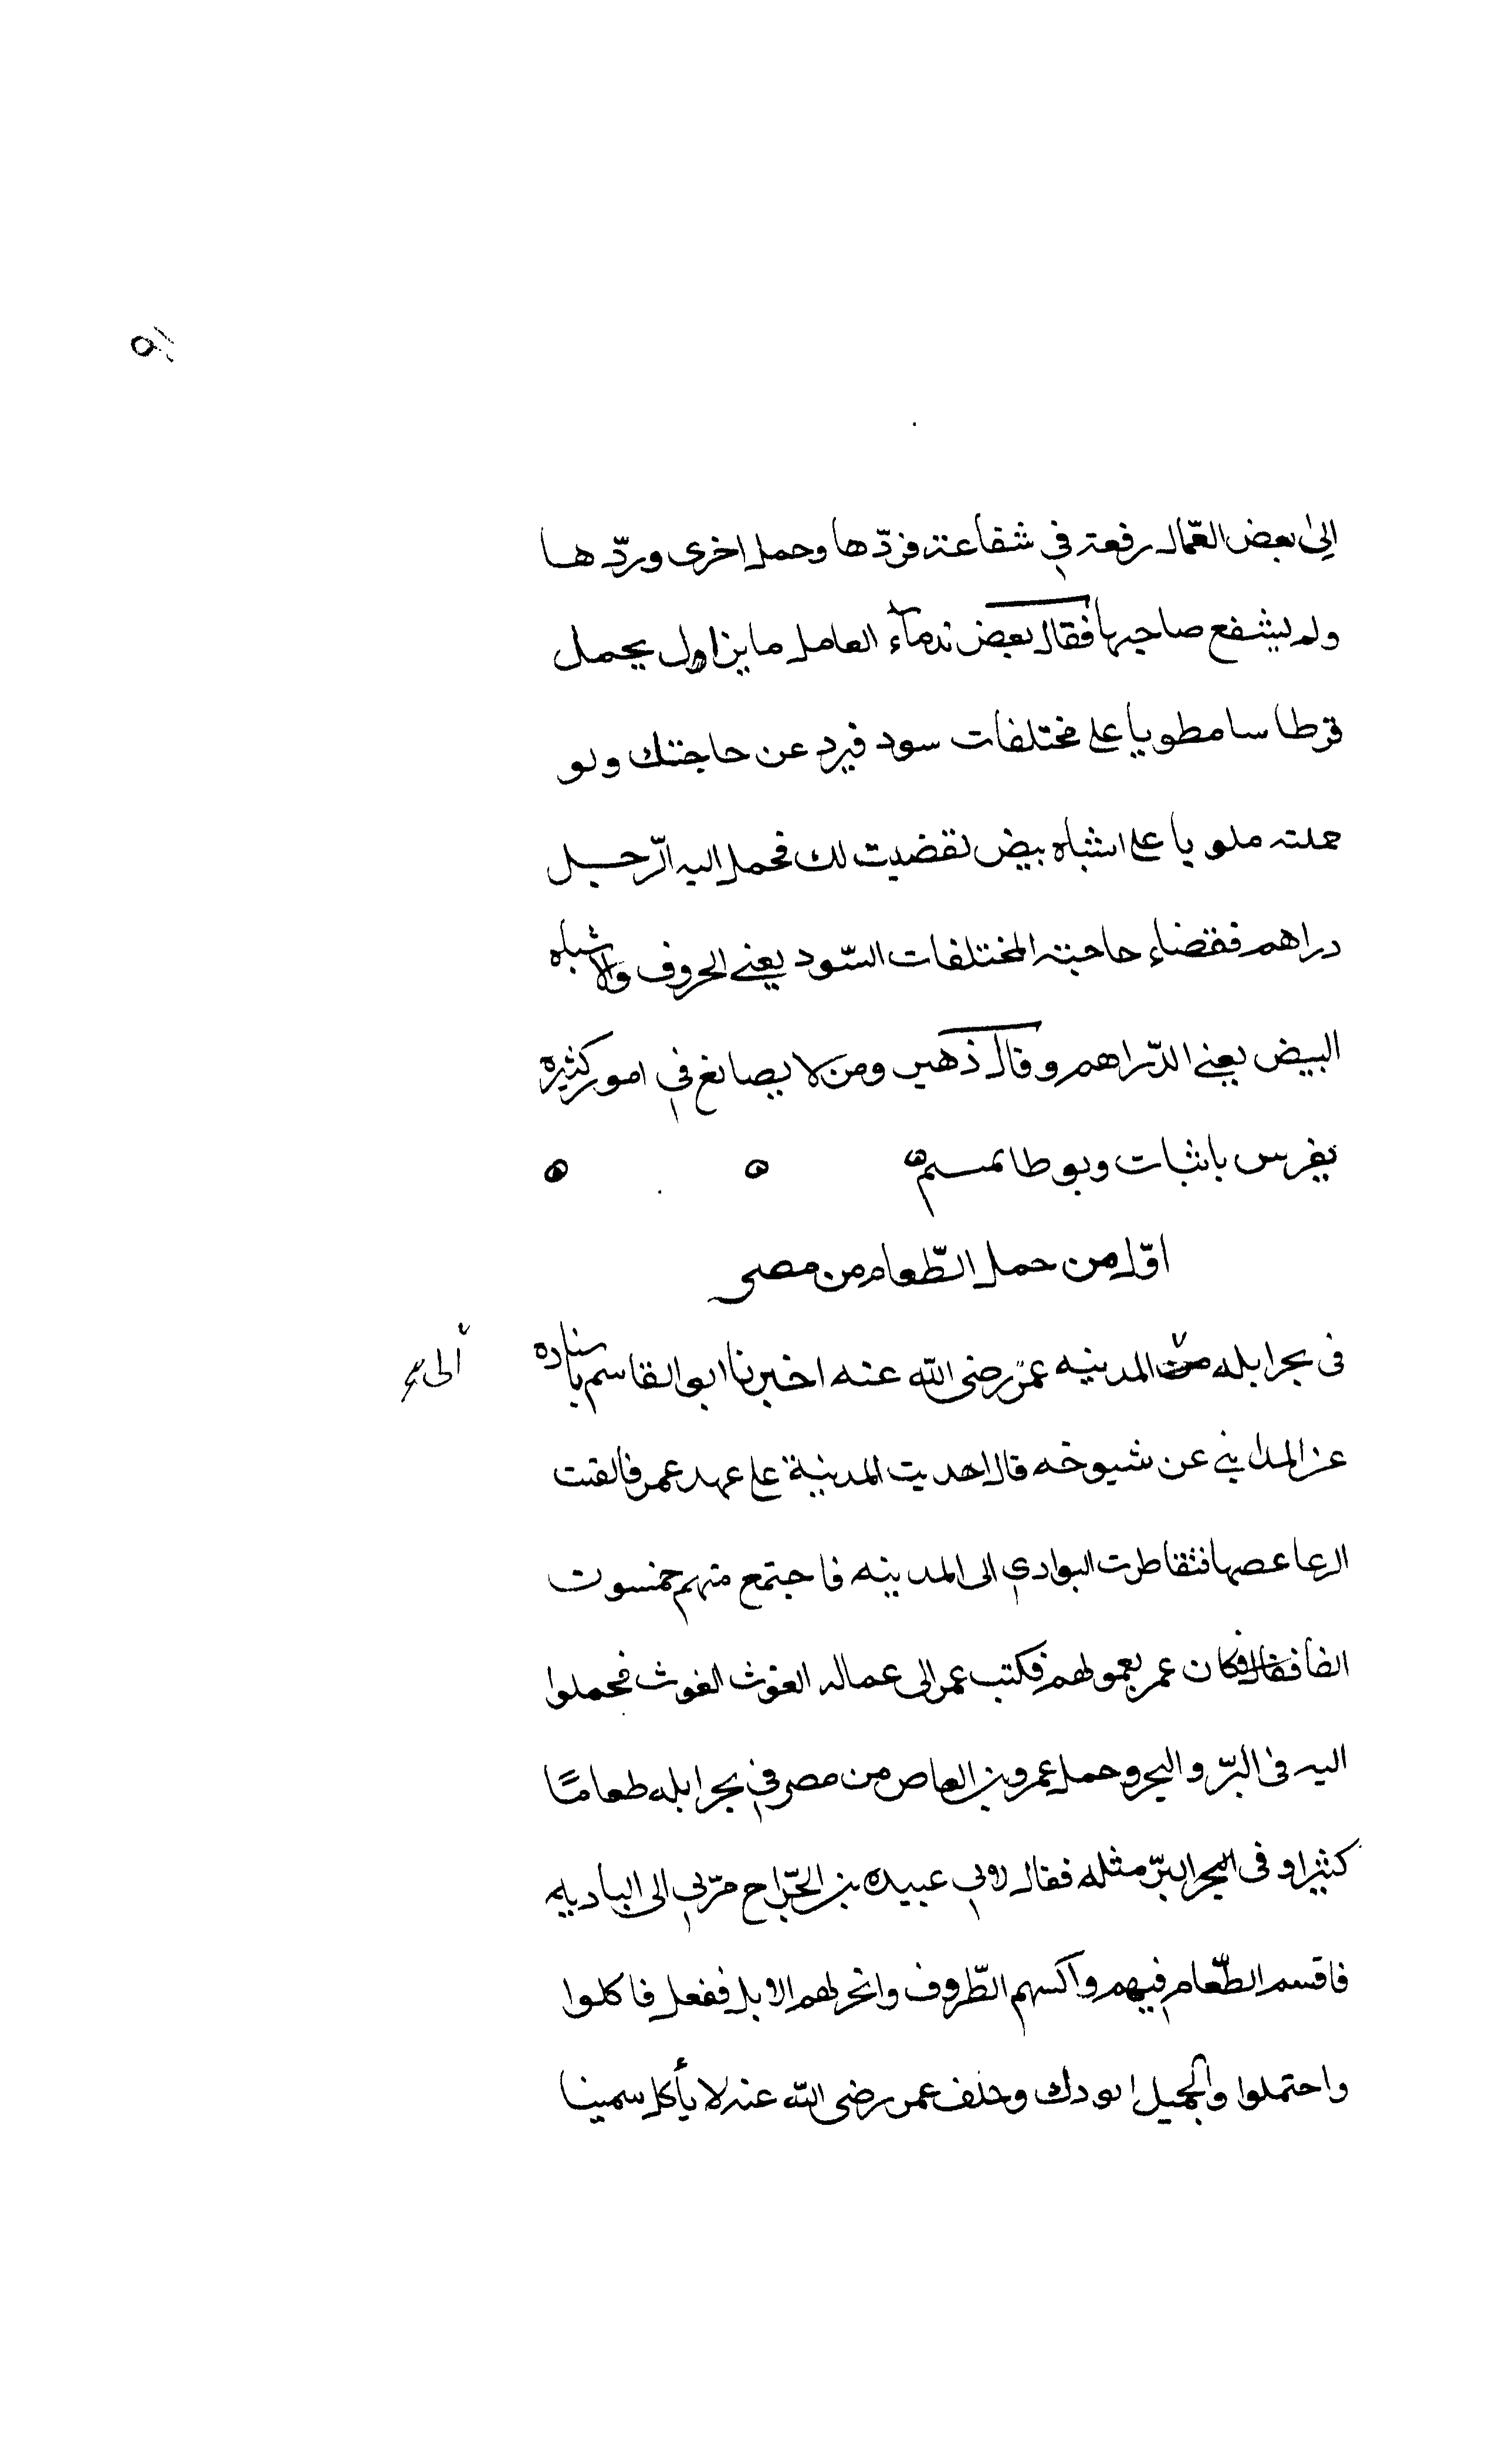 الى بعض العمّال رقعة في شفاعة فردّها وحمل اخرى وردّها
ولم يشفع صاحبها فقال بعض ندمآء العامل ما يزاول يحمل
قرطاسا مطويا على مختلفات سود فيرد عن حاجتك ولو
حملته ملويا على اشباه بيض لقضيت لك فحمل اليه الرّجل
دراهم فقضاء حاجته المختلفات السّود يعني الحروف والاشباه
البيض يعني الدّراهم وقال زهير ومن لا يصانع في امور كثيره
يضرس بانياب ويوطا بمنسم ه ه
اوّل من حمل الطّعام من مصر
في بحر ايله من المدينه عمر رضى الله عنه اخبرنا ابو القاسم باسناده
الى
عن المدايني عن شيوخه قال اجديت المدينة على عهد عمر فالقت
الرعا عصيها فتقاطرت البوادي الى المدينه فاجتمع منهم خمسون
الفا فقال فكان عمر يعولهم فكتب عمر الى عماله الغوث الغوث فحملوا
اليه في البرّ والبحر وحمل عمرو بن العاص من مصر في بحر ايله طعامًا
كثيرا وفي البحر البرّ مثله فقال لابي عبيده بن الجّراح مرّ بي الى الباديه
فاقسم الطّعام فيهم واكسهم الظّروف وانحر لهم الابل ففعل فاكلوا
واحتملوا والجميل الودك وحلف عمر رضى الله عنه لا يأكل سمينا